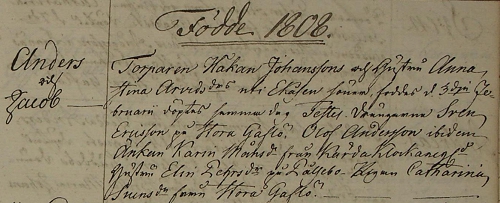 Födde 1808.
Anders
och
Jacob
Torparen Håkan Johanssons och Hustru Anna
Stina Arvidsdrs uti Ekåsen söner, föddes d 3dje Fe-
bruarii döptes samma dag Testes Drängarne Sven
Ericsson på Stora Gassö. Olof Andersson ibidem
Änkan Karin från
Hustru Elin Pehrsdr på Pigan Catharina
Svensdr från Stora Gassö.